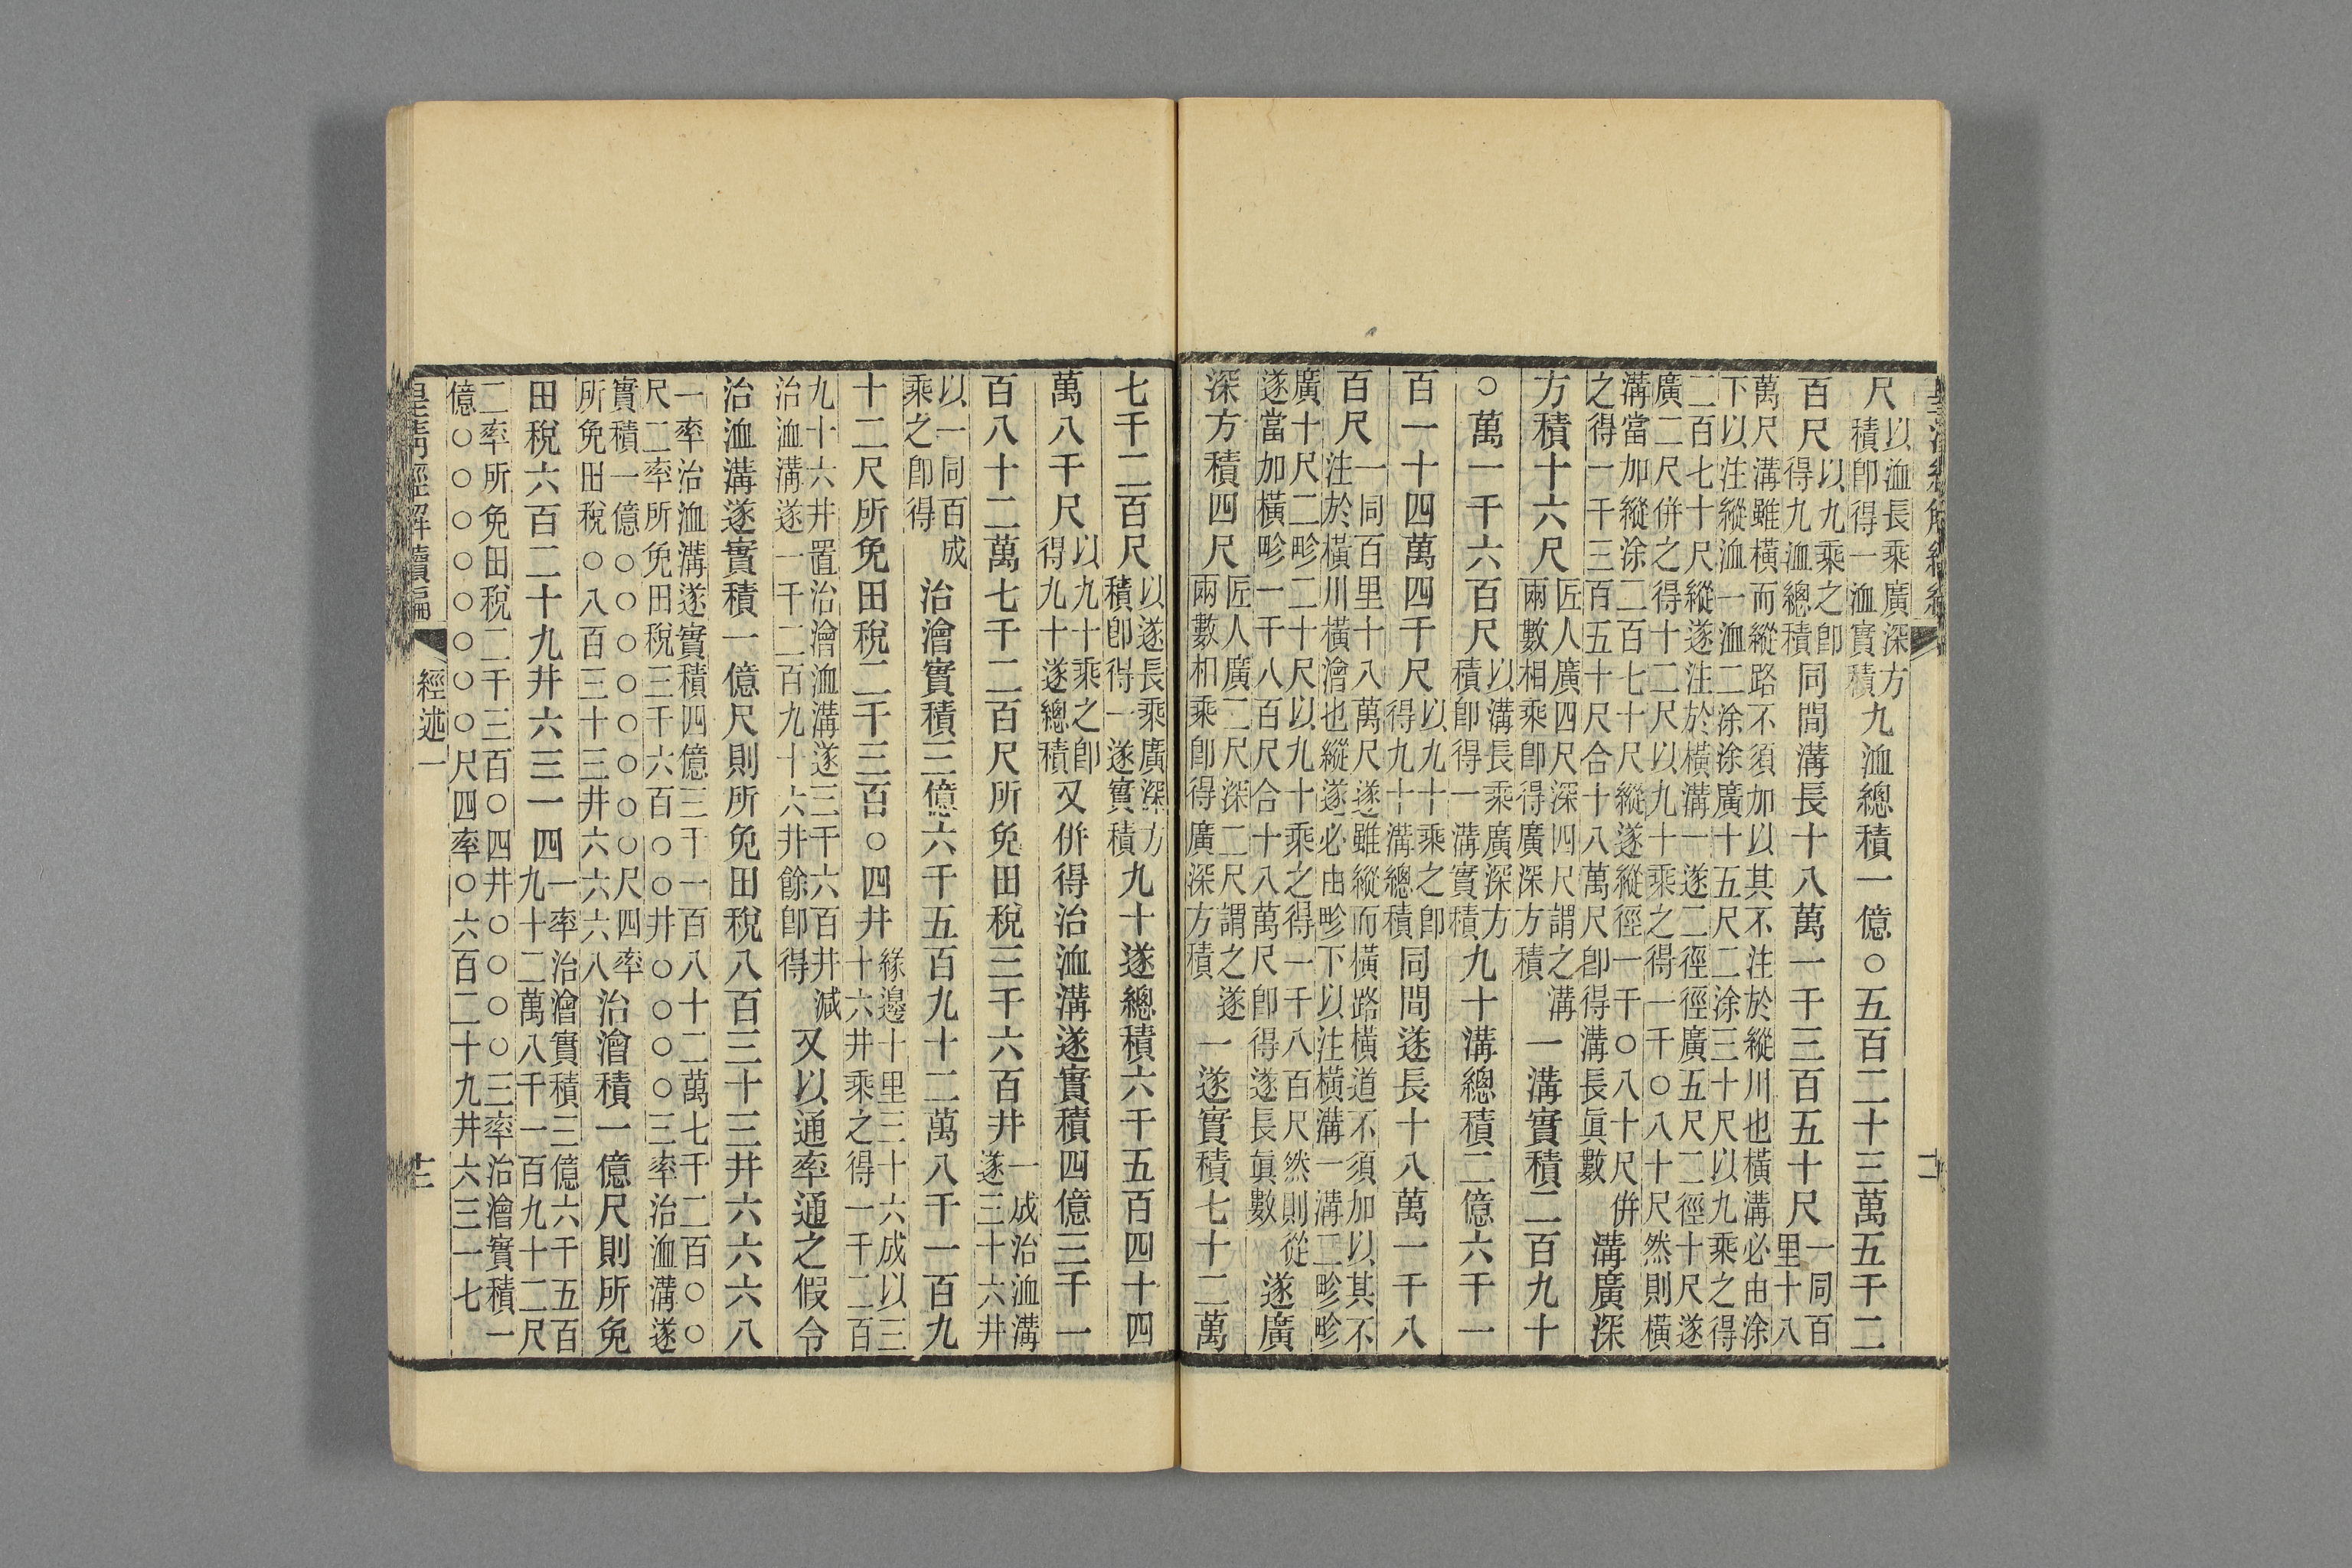 皇清經解續編
二
尺
以洫長乘廣深方
積卽得一洫實積
九洫總積一億○五百二十三萬五千二
百尺
以九乘之卽
得九洫總積
同間溝長十八萬一千三百五十尺
一同百
里十八
萬尺溝雖橫而縱路不須加以其不注於縱川也橫溝必由涂
下以注縱洫一洫二涂涂廣十五尺二涂三十尺以九乘之得
二百七十尺縱遂注於橫溝一遂二徑徑廣五尺二徑十尺遂
廣二尺併之得十二尺以九十乘之得一千○八十尺然則橫
溝當加縱涂二百七十尺縱遂縱徑一千○八十尺併
之得一千三百五十尺合十八萬尺卽得溝長眞數
溝廣深
方積十六尺
匠人廣四尺深四尺謂之溝
兩數相乘卽得廣深方積
一溝實積二百九十
○萬一千六百尺
以溝長乘廣深方
積卽得一溝實積
九十溝總積二億六千一
百一十四萬四千尺
以九十乘之卽
得九十溝總積
同間遂長十八萬一千八
百尺
一同百里十八萬尺遂雖縱而橫路橫道不須加以其不
注於橫川橫澮也縱遂必由畛下以注橫溝一溝二畛畛
廣十尺二畛二十尺以九十乘之得一千八百尺然則從
遂當加橫畛一千八百尺合十八萬尺卽得遂長眞數
遂廣
深方積四尺
匠人廣二尺深二尺謂之遂
兩數相乘卽得廣深方積
一遂實積七十二萬
七千二百尺
以遂長乘廣深方
積卽得一遂實積
九十遂總積六千五百四十四
萬八千尺
以九十乘之卽
得九十遂總積
又併得治洫溝遂實積四億三千一
百八十二萬七千二百尺所免田稅三千六百井
一成治洫溝
遂三十六井
以一同百成
乘之卽得
治澮實積三億六千五百九十二萬八千一百九
十二尺所免田稅二千三百○四井
緣邊十里三十六成以三
十六井乘之得一千二百
九十六井置治澮洫溝遂三千六百井減
治洫溝遂一千二百九十六井餘卽得
又以通率通之假令
治洫溝遂實積一億尺則所免田稅八百三十三井六六六八
一率治洫溝遂實積四億三千一百八十二萬七千二百○○
尺二率所免田稅三千六百○○井○○○○三率治洫溝遂
實積一億○○○○○○○○尺四率
所免田稅○八百三十三井六六六八
治澮積一億尺則所免
田稅六百二十九井六三一四
一率治澮實積三億六千五百
九十二萬八千一百九十二尺
二率所免田稅二千三百○四井○○○○三率治澮實積一
億○○○○○○○○尺四率○六百二十九井六三一七
皇清經解續編
經述一